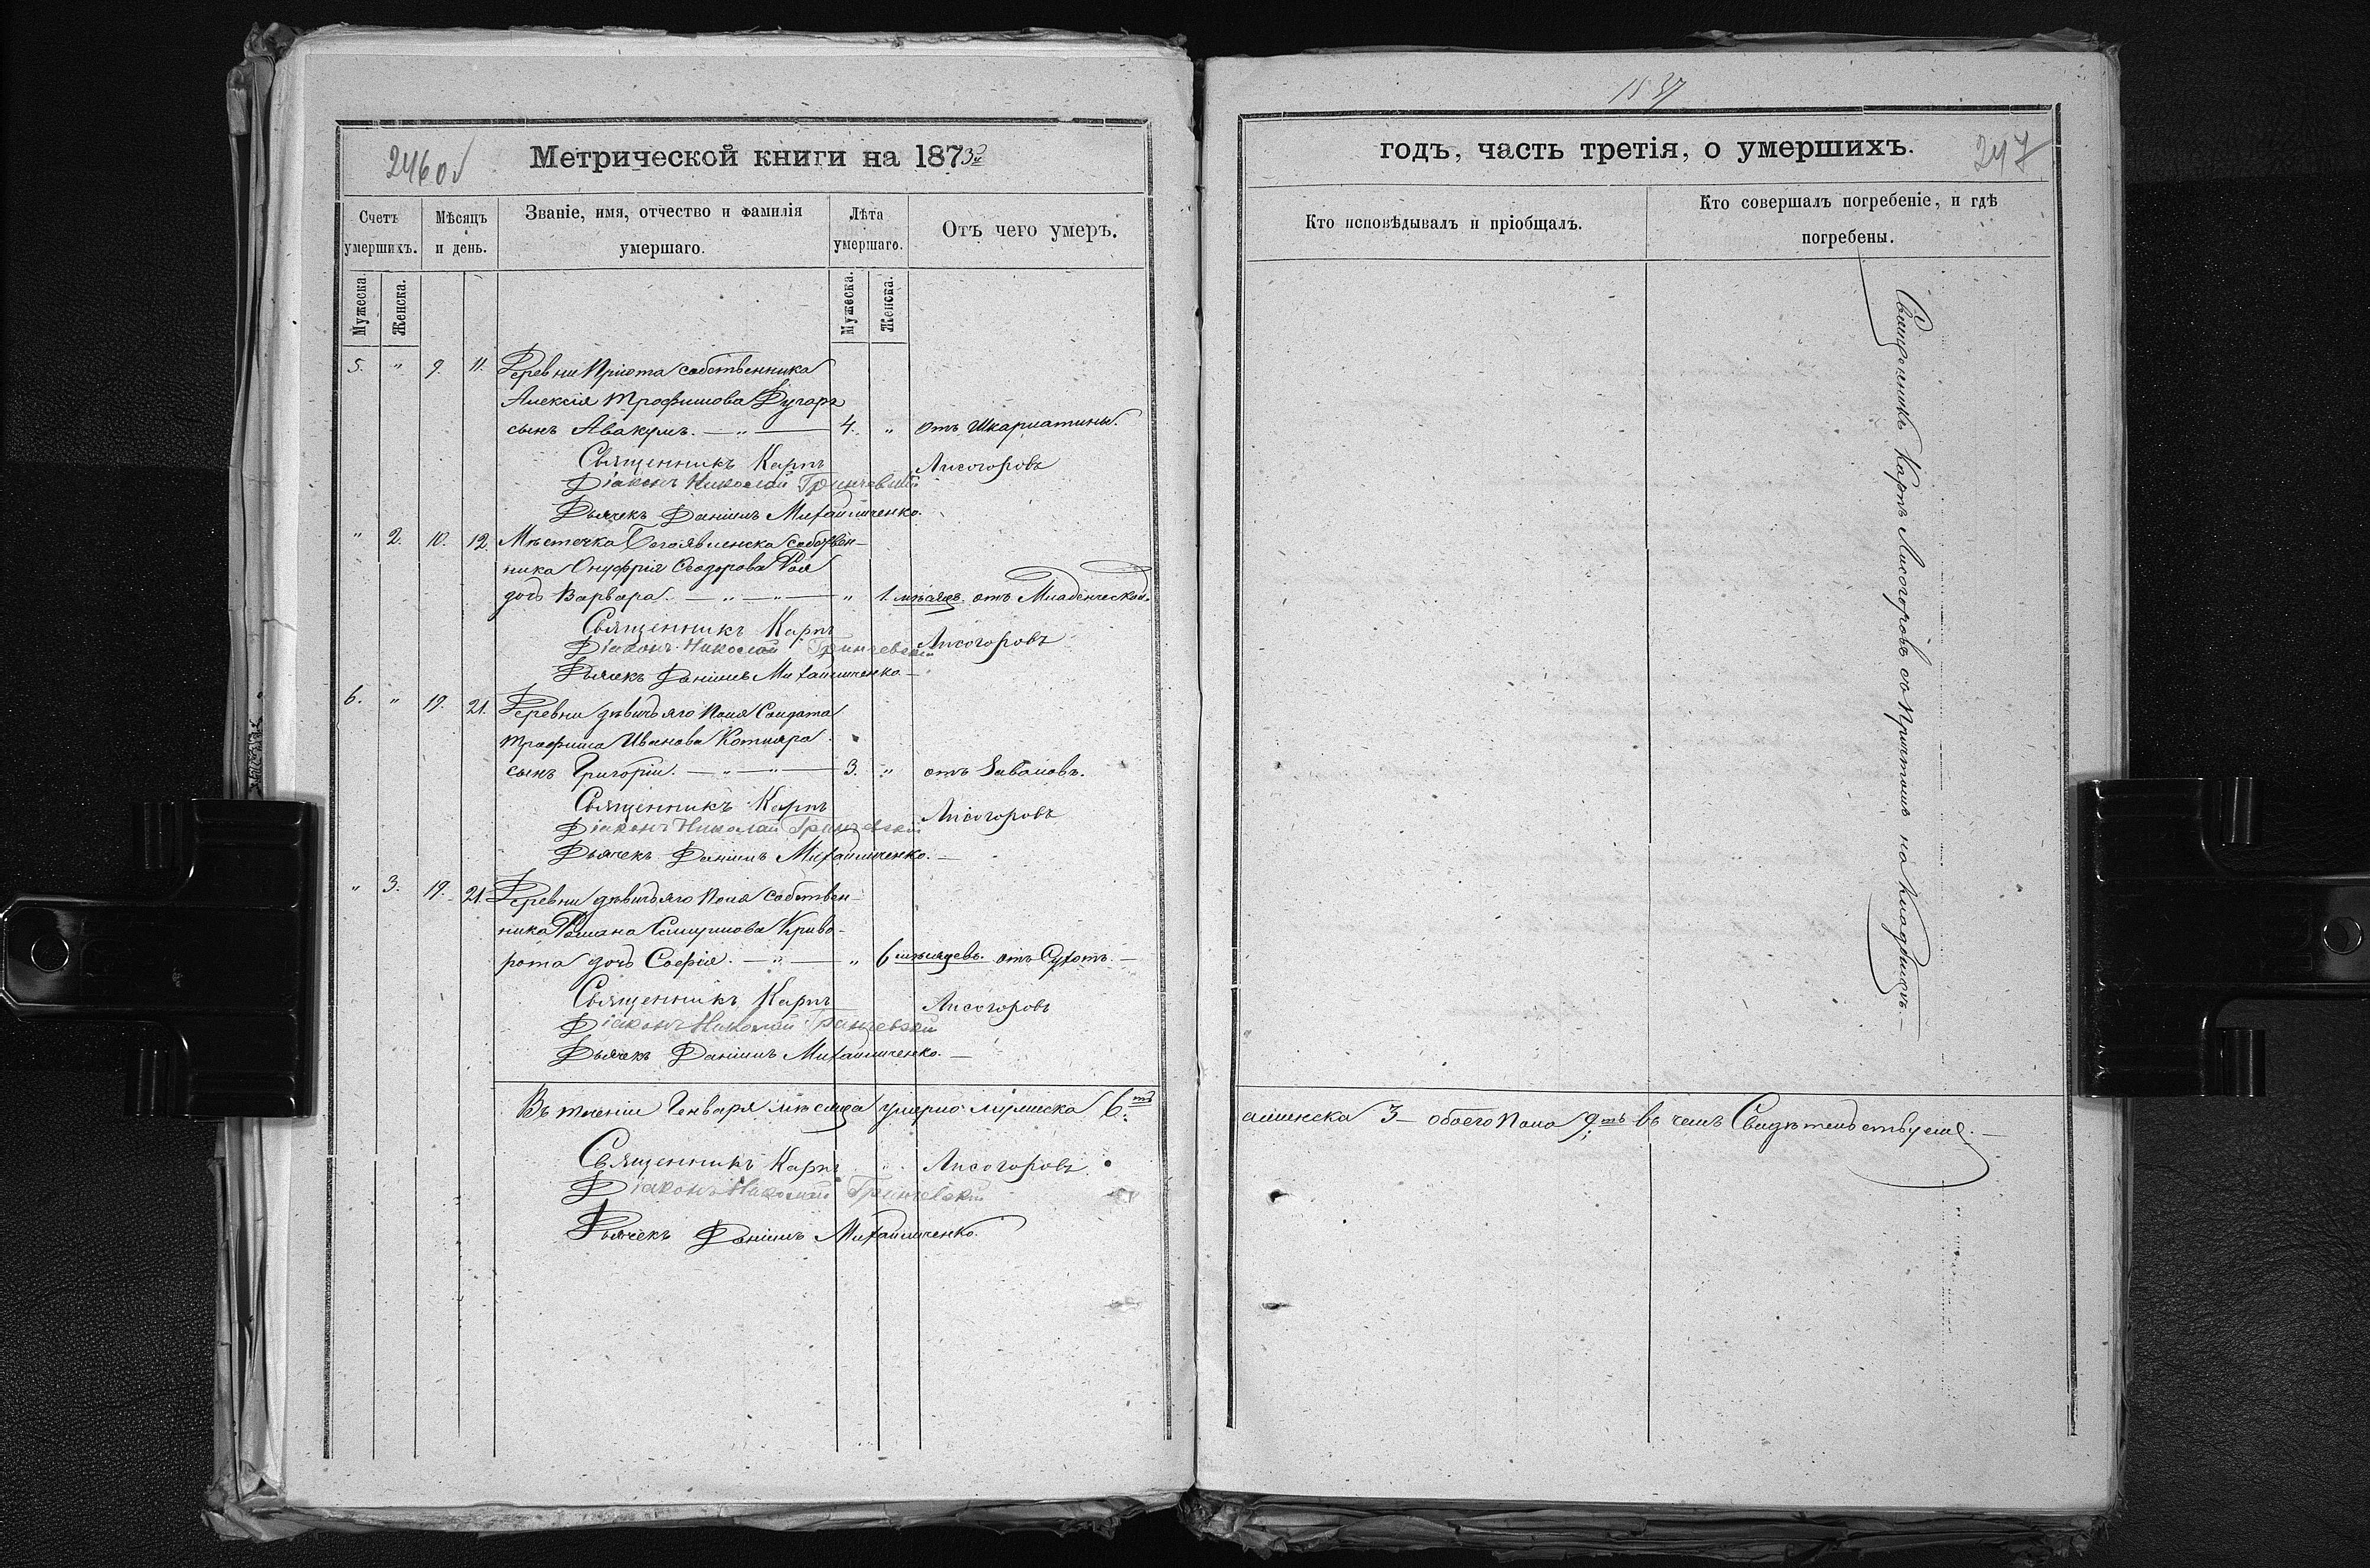 246об
Метрической книги на 1873й
Счетъ умершихъ.
Мѣсяцъ и день.
Званіе, имя, отчество и фамилія умершаго.
Лѣта умершаго.
Отъ чего умеръ.
Мужеска. Женска.
Мужеска. Женска.
5. " 9. 11. Деревни Пріюта собственника
Алексія Трофимова
сынъ Авакумъ. — " — 4. " отъ Шкарлатины.
Священникъ Карпъ Лисогоровъ
Діаконъ Николай Гринчевскій
Дьячекъ Даніилъ Михайличенко.
" 2. 10. 12. Мѣстечка Богоявленска собствен-
ника Онуфрія Ѳеодорова Роя
дочь Варвара. — " — " — " 1. мѣсяцъ. отъ Младенческой.
Священникъ Карпъ Лисогоровъ
Діаконъ Николай Гринчевскій
Дьячекъ Даніилъ Михайличенко. —
6. " 19. 21. Деревни дѣвичьяго Поля Солдата
Трофима Иванова Котляра
сынъ Григорій. — " — " — 3. " отъ Заваловъ.
Священникъ Карпъ Лисогоровъ
Діаконъ Николай Гринчевскій
Дьячекъ Даніилъ Михайличенко. —
" 3. 19. 21. Деревни дѣвичьяго Поля собствен-
ника Романа Криво-
рота дочь Софія. — " — " 6 мѣсяцевъ. отъ Сухотъ. —
Священникъ Карпъ Лисогоровъ
Діаконъ Николай Гринчевскій
Дьячекъ Даніилъ Михайличенко. —
Въ теченіи Генваря мѣсяца умерло мужеска 6.ть
Священникъ Карпъ Лисогоровъ
Діаконъ Николай Гринчевскій
Дьячекъ Даніилъ Михайличенко.
годъ, часть третія, о умершихъ.
247
Кто исповѣдывалъ и пріобщалъ.
Кто совершалъ погребеніе, и гдѣ погребены.
Священникъ Карпъ Лисогоровъ съ Причтомъ на Кладбищѣ. —
а женска 3 — обоего Пола 9.ть въ чемъ Свидѣтельствуемъ. —